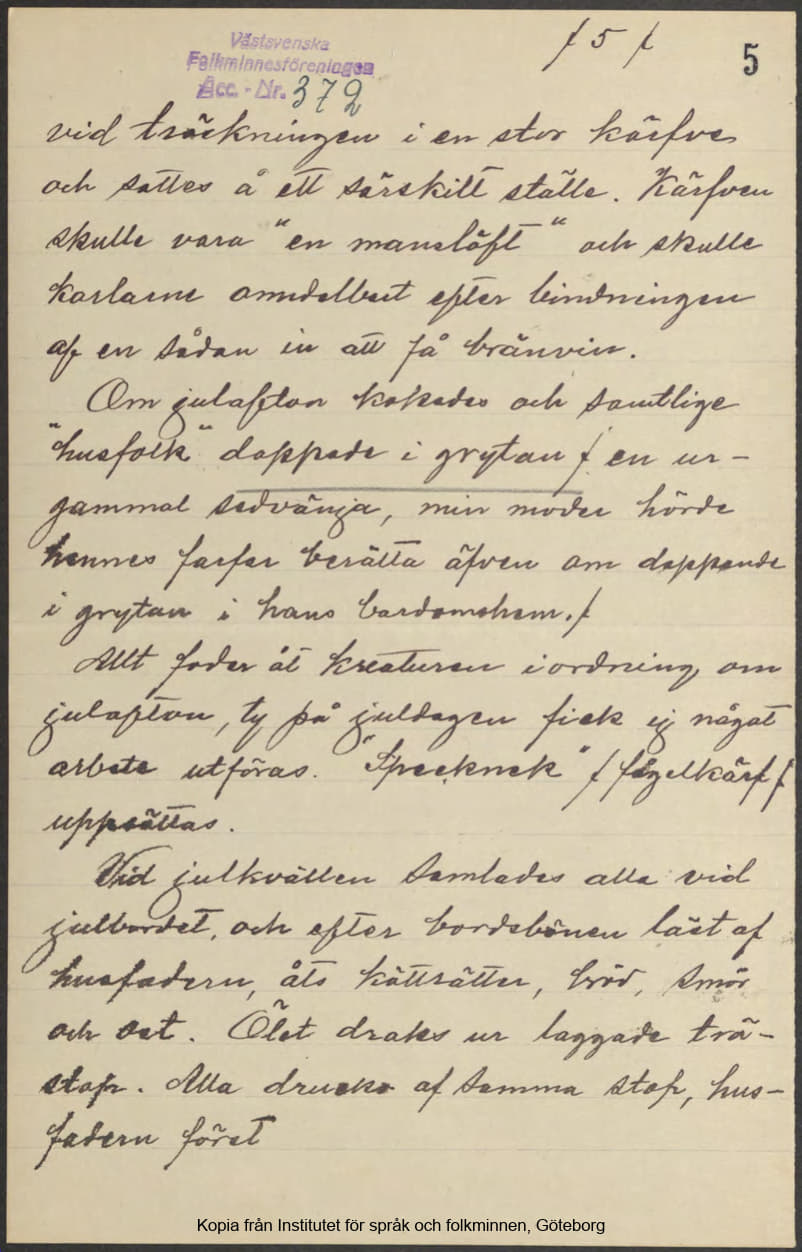 / 5 /
5
Västsvenska
Folkminnesföreningen
Acc. - Nr. 372
vid träckningen i en stor kärfve
och sattes å ett särskilt ställe. Kärfven
skulle vara "en manslöft" och skulle
karlarne omedelbart efter bindningen
af en sådan in att få bränvin.
Om julafton kokades och samtlige
"husfolk" doppade i grytan / en ur-
gammal sedvänja, min moder hörde
hennes farfar berätta äfven om doppande
i grytan i hans barndomshem. /
Allt foder åt kreaturen iordning om
julafton, ty på juldagen fick ej något
arbete utföras. "Specknek" / fogelkärf /
uppsättas.
Vid julkvällen samlades alla vid
julbordet, och efter bordsbönen läst af
husfadern, åts kötträtter, bröd, smör
och ost. Ölet draks ur laggade trä-
stop. Alla drucko af samma stop, hus-
fadern först
Kopia från Institutet för språk och folkminnen, Göteborg